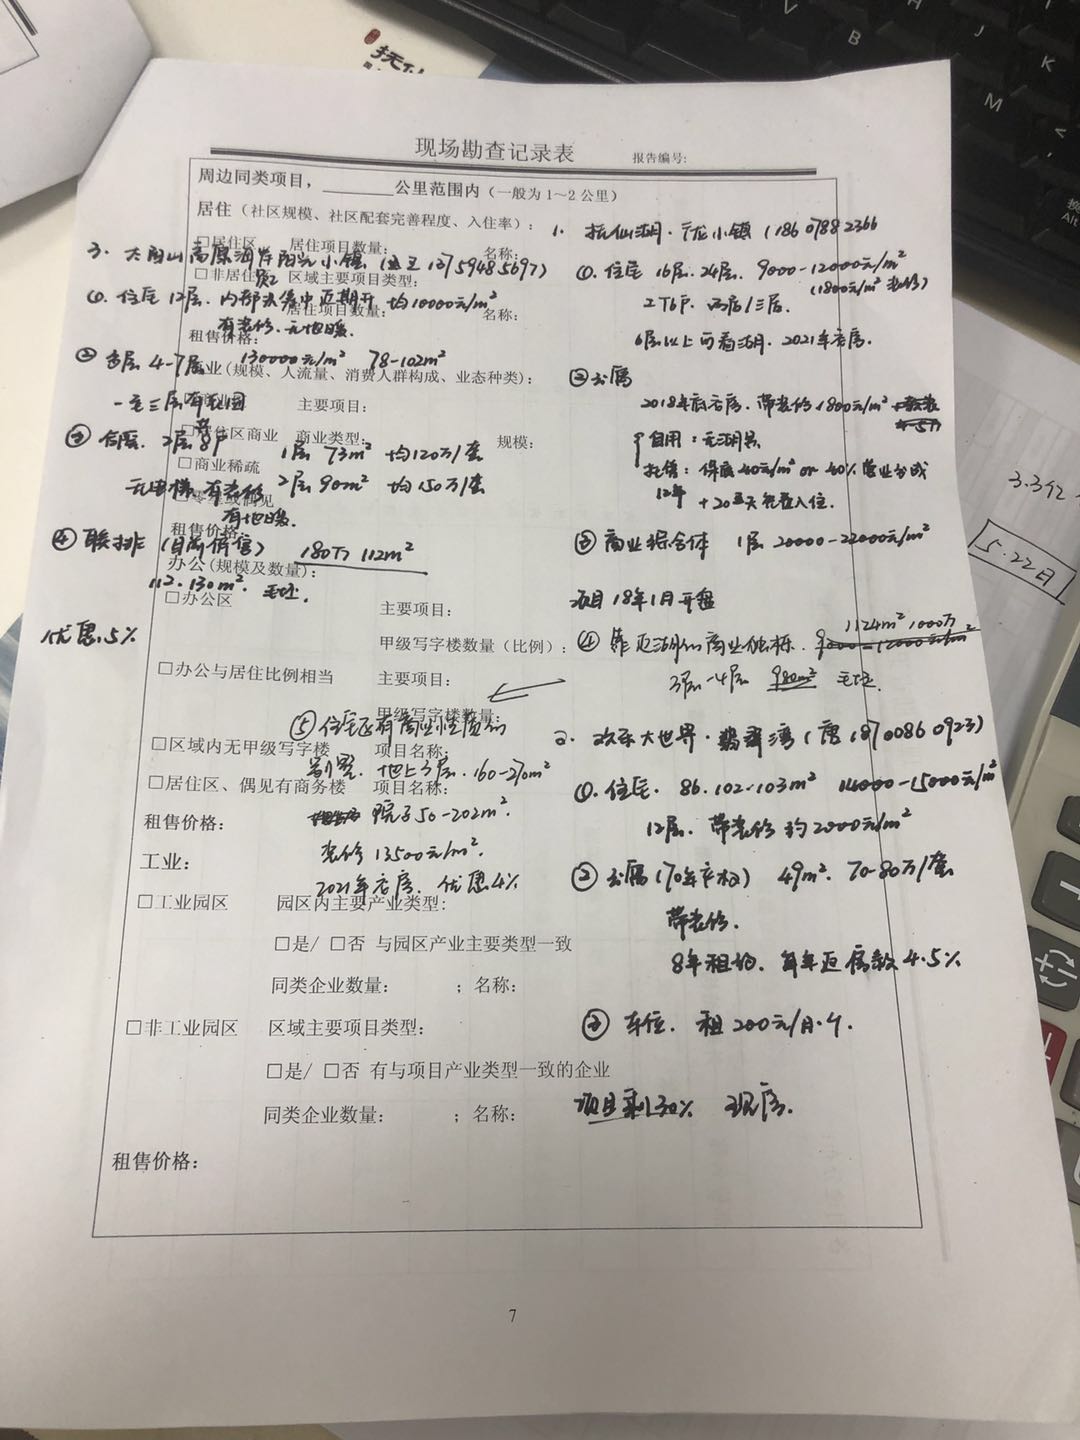 现场勘查记录表
报告编号:
周边同类项目，______公里范围内（一般为1~2公里）
居住（社区规模、社区配套完善程度、入住率）:
□居住区 居住项目数量: 名称:
□非居住区 区域主要项目类型:
居住项目数量: 名称:
租售价格:
商业(规模、人流量、消费人群构成、业态种类):
主要项目:
□居住区商业 商业类型: 规模:
□商业稀疏
租售价格:
办公(规模及数量):
□办公区 主要项目:
甲级写字楼数量（比例）:
□办公与居住比例相当 主要项目:
甲级写字楼数量:
□区域内无甲级写字楼 项目名称:
□居住区、偶见有商务楼 项目名称:
租售价格:
工业:
□工业园区 园区内主要产业类型:
□是/ □否 与园区产业主要类型一致
同类企业数量: ；名称:
□非工业园区 区域主要项目类型:
□是/ □否 有与项目产业类型一致的企业
同类企业数量: ；名称:
租售价格:
7
1. 抚仙湖·广龙小镇 (18607882366
①. 住宅 16层. 24层. 9000-12000元/m²
2T6户.
6层以上可看湖. 2021年交房.
②公寓
2018年底交房. 带装修1800元/m²
自用: 无湖景
托管: 保底40元/m² or 40%营业分成
12年
③ 商业综合体 1层 20000-22000元/m²
项目18年1月开盘
1124m² 1000万
④ 靠近湖的商业独栋.
3层-4层 980m² 毛坯.
2. 欢乐大世界·翡翠湾 (唐 18700860923)
①. 住宅. 86.102-103m² 14000-15000元/m²
12层. 带装修约2000元/m²
② 公寓(70年产权) 49m². 70-80万/套
带装修.
8年租约. 每年返房款4.5%
③ 车位. 租200元/月·个.
项目剩30% 现房.
3. 太阳山高原海岸阳光小镇 (连王 13759485697)
①. 住宅 12层. 内部认筹中近期开 均10000元/m²
有装修. 无地暖.
② 多层 4-7层 130000元/m² 78-102m²
一至三层有花园
③ 合院. 2层8户 1层 73m² 均120万/套
无电梯. 有装修 2层 90m² 均150万/套
有地暖.
④ 联排 (目前偶售) 180万 112m²
112.130m². 毛坯.
优惠.5%
⑤ 住宅还有商业性质的
别墅. 地上3层. 160-270m²
院子50-202m².
装修 13500元/m².
2021年交房. 优惠4%
3.3亿
5.22日